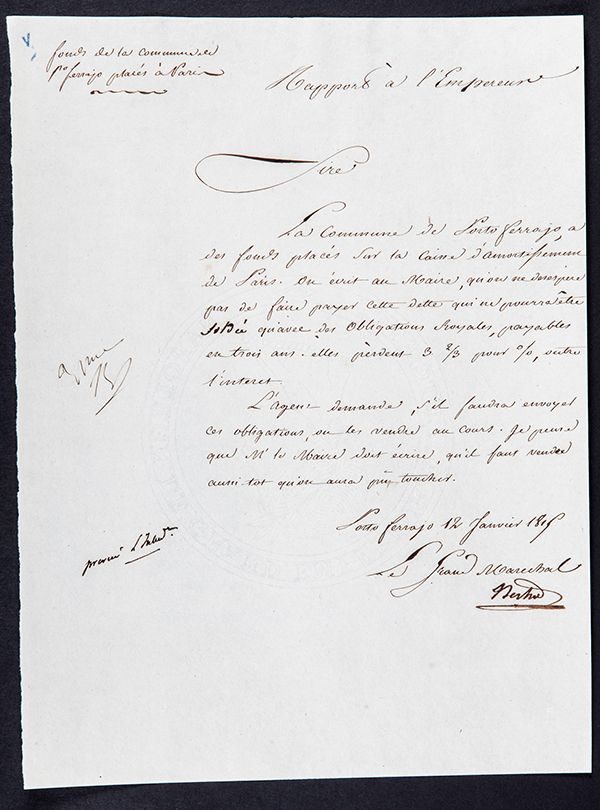 fonds de la commune de
Pto ferrajo placés à Paris
Rapport à l'Empereur
Sire
La Commune de Porto ferrajo a
des fonds placés sur la Caisse d'amortissement
de Paris. On écrit au Maire, qu'on ne desespere
pas de faire payer cette dette qui ne pourra être
soldée qu'avec des Obligations Royales, payables
en trois ans. elles perdent 3 2/3 pour %, outre
l'interet.
L'agent demande, s'il faudra envoyer
ces obligations, ou les vendre au cours. Je pense
que Mr le Maire doit écrire, qu'il faut vendre
aussi-tot qu'on aura pu toucher.
Porto ferrajo 12 Janvier 1815
Le Grand Marechal
Bertrand